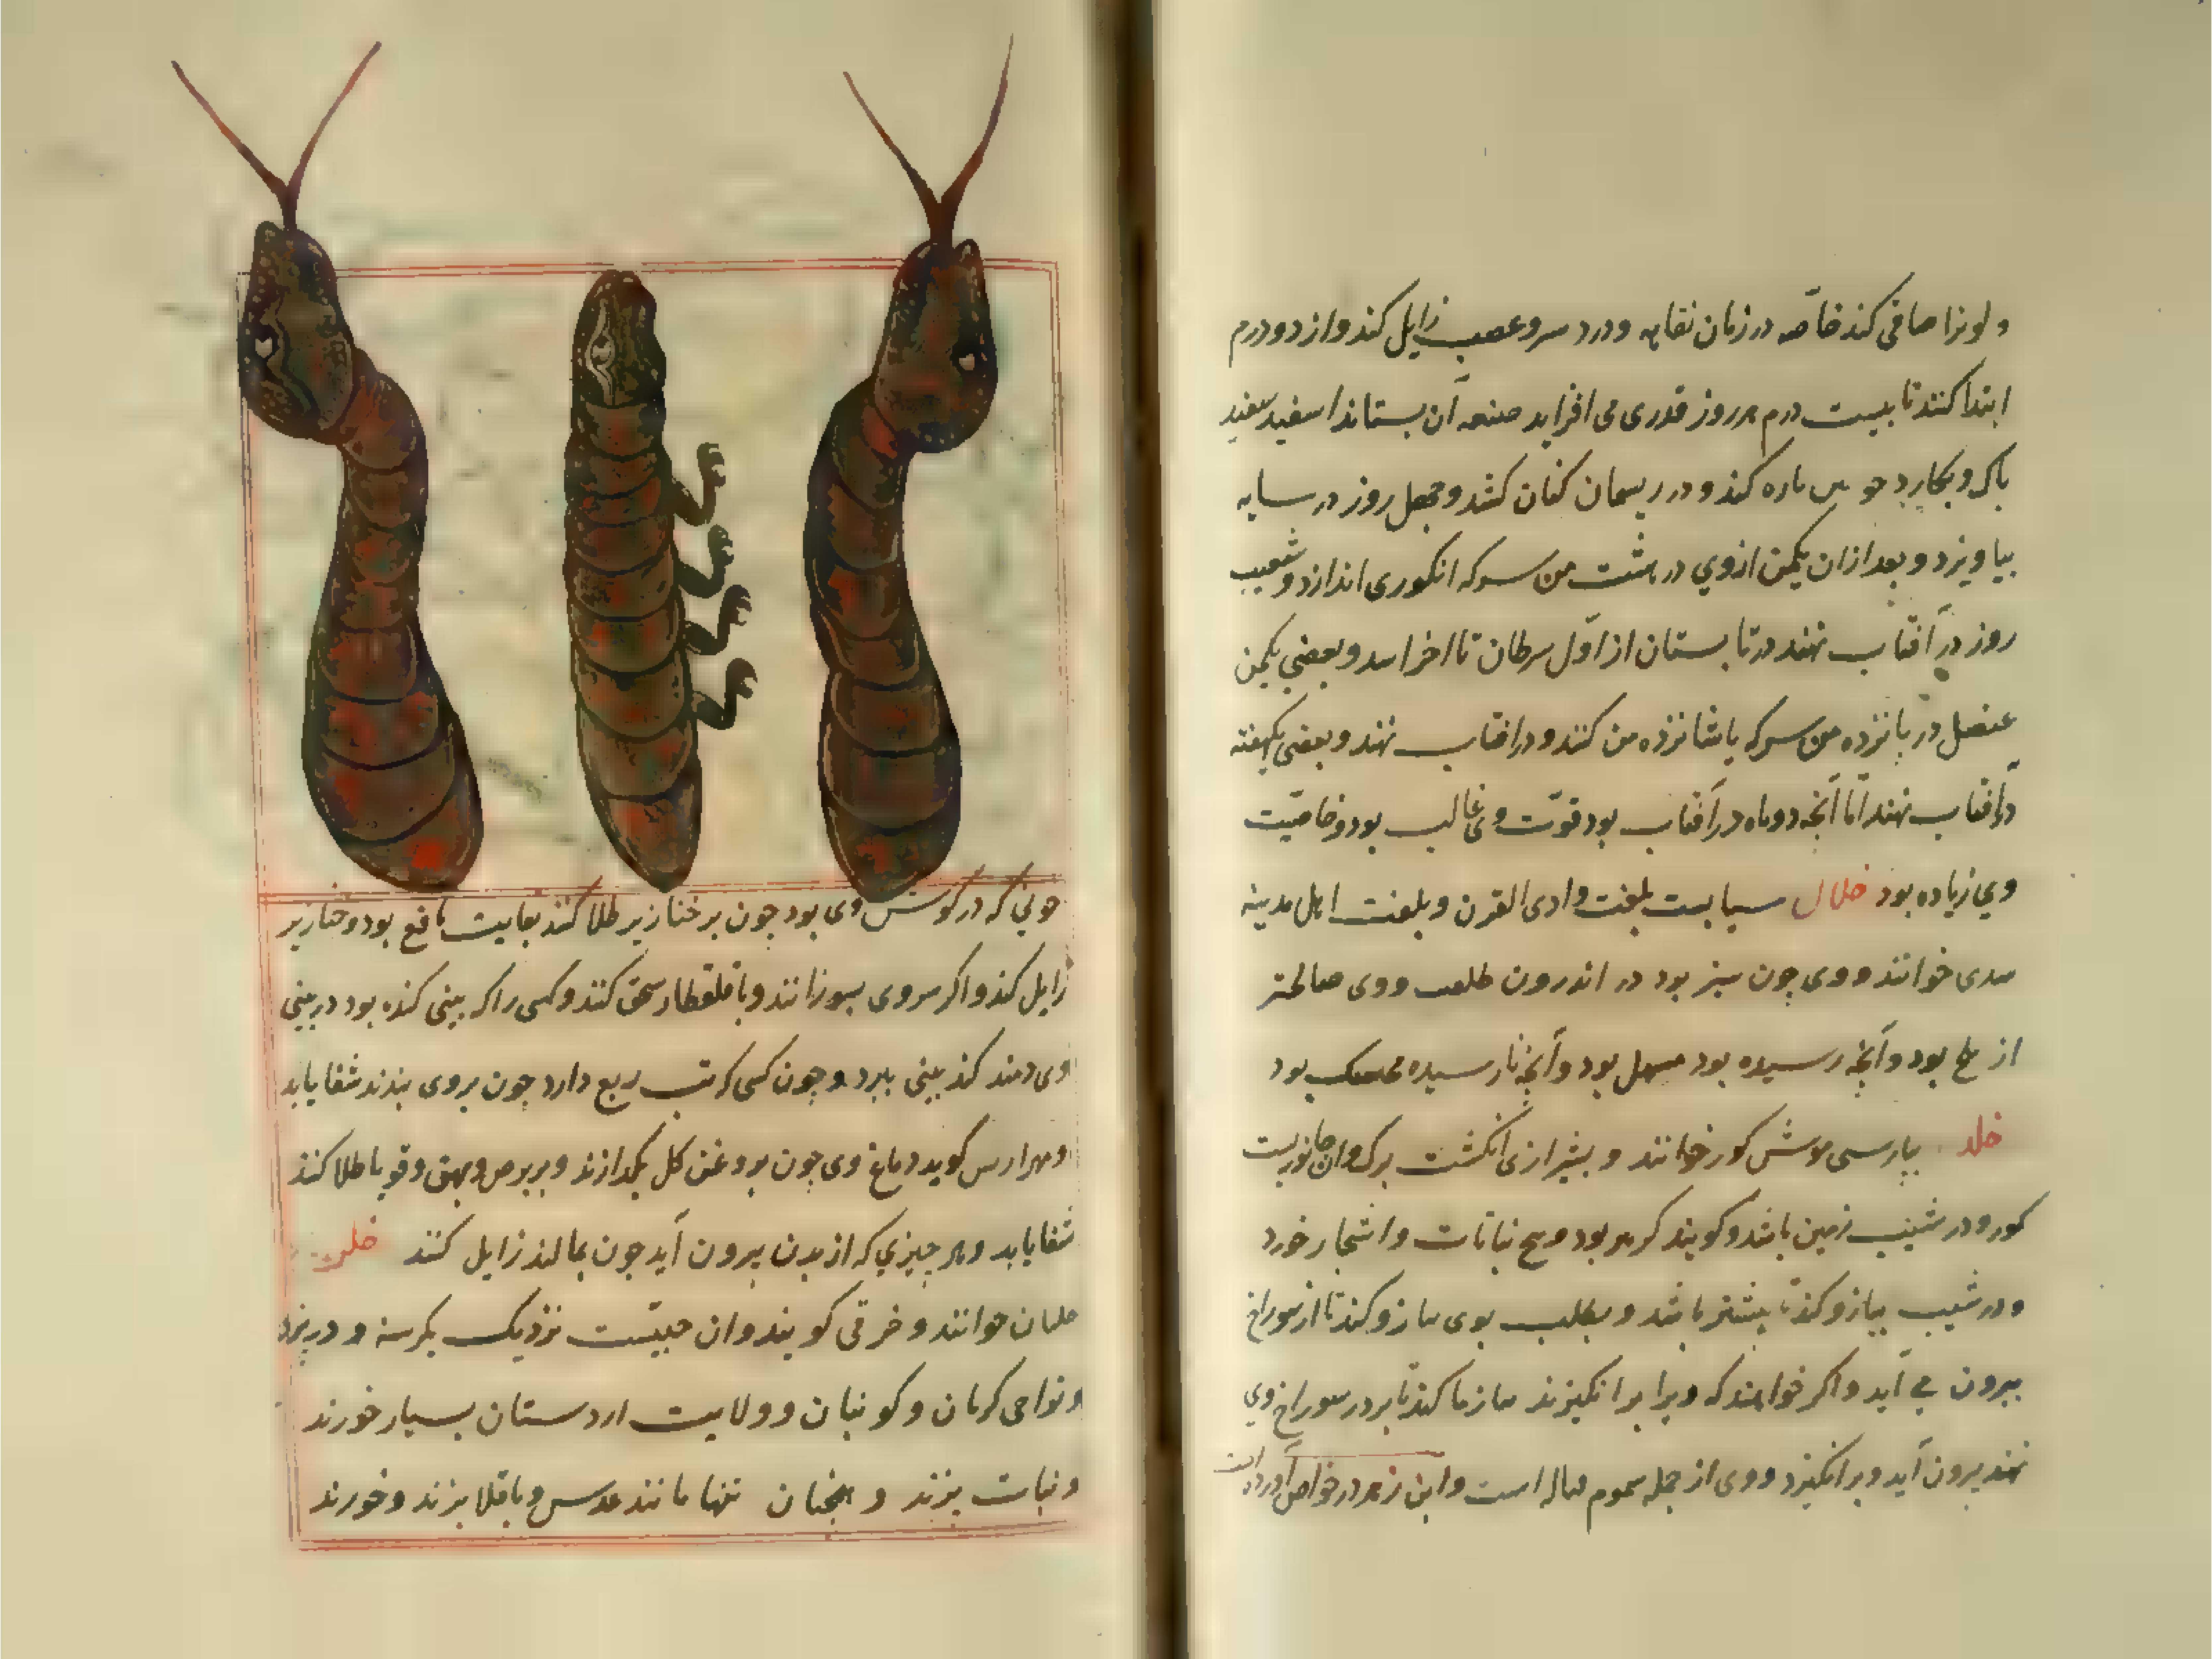 و لونرا صافی کند خاصّه در زمان نقاهه و درد سر و عصب زایل کند و از دو درم
ابتدا کنند تا بیست درم هر روز قدری می افزاید صنعه آن بستاند اسفید سفید
باک و بکارد جو بین باره کند و در ریسمان کتان کشد و چهل روز در سایه
بیاویزد و بعد ازان یکمن ازوي در هشت من سرکه انکوری اندازد و شصت
روز در آفتاب نهند در تابستان از اوّل سرطان تا اخر اسد و بعضی یکمن
عنصل در بانزده من سرکه یا شانزده من کنند و در افتاب نهند و بعضی یکهفته
در آفتاب نهند امّا آنجه دو ماه در آفتاب بود قوّت وی غالب بود و خاصیّت
وي زیاده بود خلال سیابست بلغت وادی القری و بلغت اهل مدینه
سدی خوانند و وی چون سبز بود در اندرون طلعت و وی صالحتر
از بلح بود و آنجه رسیده بود مسهل بود و آنجه نارسیده ممسک بود
خلد بپارسی موش کور خوانند و بیشر ازی انکشت برک وان جانوریست
کور و در شیب زمین باشد و کویند کر هم بود و بیخ نباتات و اشجار خورد
و در شیب بیاز و کندنا بیشتر باشد و بطلب بوی بیاز و کندنا از سوراخ
بیرون می آید و اکر خواهند که ویرا برانکیزند بیاز یا کندنا بر در سوراخ وي
نهند بیرون آید و برانکیزد و وی از جمله سموم قتاله است و ابن زهر در خواص آورده است
خونی که در کوش وی بود چون بر خنازیر طلا کنند بغایت نافع بود و خنازیر
زایل کند و اکر سر وی بسوزانند و با قلقطار سحق کنند و کسی را که بینی کنده بود در بینی
وی دمند کند بینی ببرد و چون کسی که تب ربع دارد چون بر وی بندند شفا یابد
و مهرارس کوید دماغ وی چون بروغن کل بکدازند و بر برص و بهق و قوبا طلا کنند
شفا یابد و هر چیزي که از بدن بیرون آید چون بمالند زایل کنند خلر
خلمان خوانند و خرقی کویند و ان حبیّست نزدیک بکرسنه و در یزد
و نواحی کرمان و کونبان و ولایت اردستان بسیار خورند
و نبات بزند و همجنان تنها مانند عدس و باقلا بزند و خورند